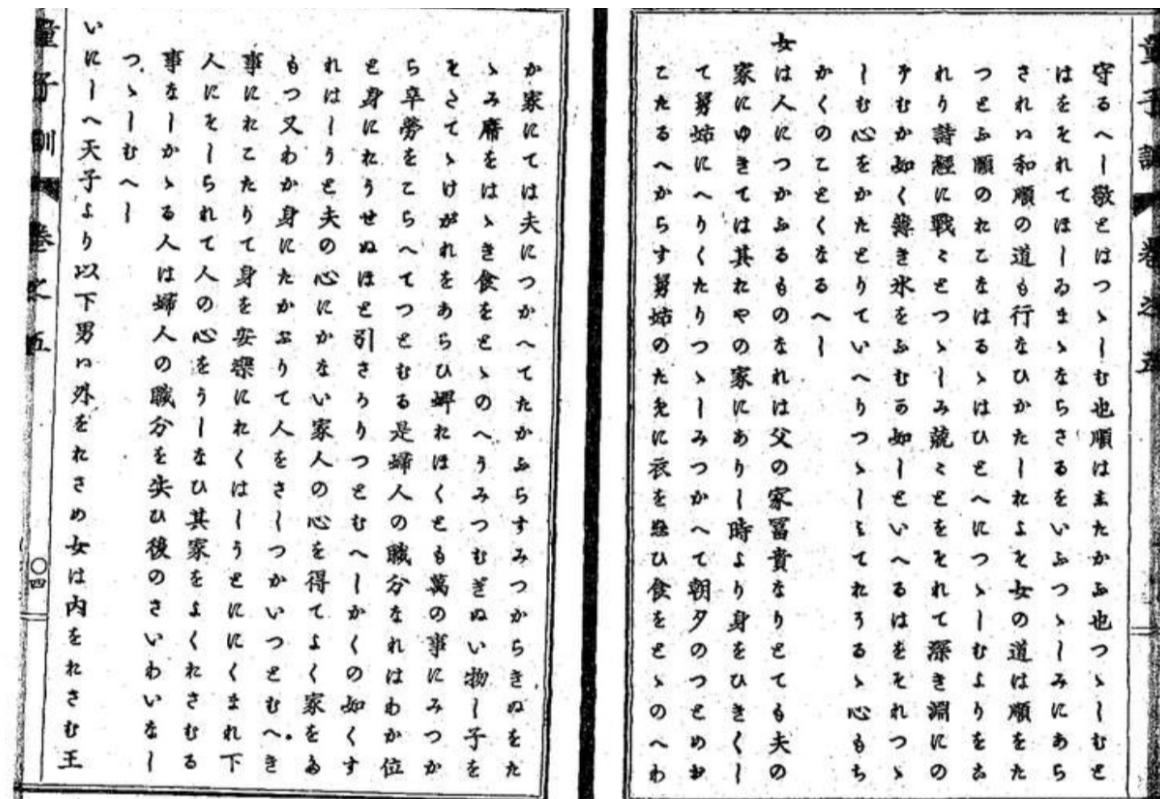 童子訓 巻之五
守るへし敬とはつゝしむ也順はしたかふ也つゝしむと
はをそれてほしゐまゝならさるをいふつゝしみにあら
されハ和順の道も行なひかたしおよそ女の道は順をた
つとふ順のおこなはるゝはひとへにつゝしむよりをこ
れり詩經に戰々とつゝしみ兢々とをそれて深き淵にの
そむか如く薄き氷をふむか如しといへるはをそれつゝ
しむ心をかたとりていへりつゝしみておそるゝ心もち
かくのことくなるへし
女は人につかふるものなれは父の家冨貴なりとても夫の
家にゆきては其おやの家にありし時より身をひきくし
て舅姑にへりくたりつゝしみつかへて朝夕のつとめお
こたるへからす舅姑のために衣を縫ひ食をとゝのへわ
か家にては夫につかへてたかふらすみつからきぬをた
ゝみ席をはゝき食をとゝのへうみつむぎぬい物し子を
そたてゝけがれをあらひ婢おほくとも萬の事にみつか
ら辛勞をこらへてつとむる是婦人の職分なれはわか位
と身におうせぬほと引さかりつとむへしかくの如くす
れはしうと夫の心にかない家人の心を得てよく家をた
もつ又わか身にたかふりて人をさしつかいつとむへき
事におこたりて身を安樂におくはしうとににくまれ下
人にそしられて人の心をうしなひ其家をよくおさむる
事なしかゝる人は婦人の職分を失ひ後のさいわいなし
つゝしむへし
いにしへ天子より以下男ハ外をおさめ女は内をおさむ王
童子訓 巻之五 〇四